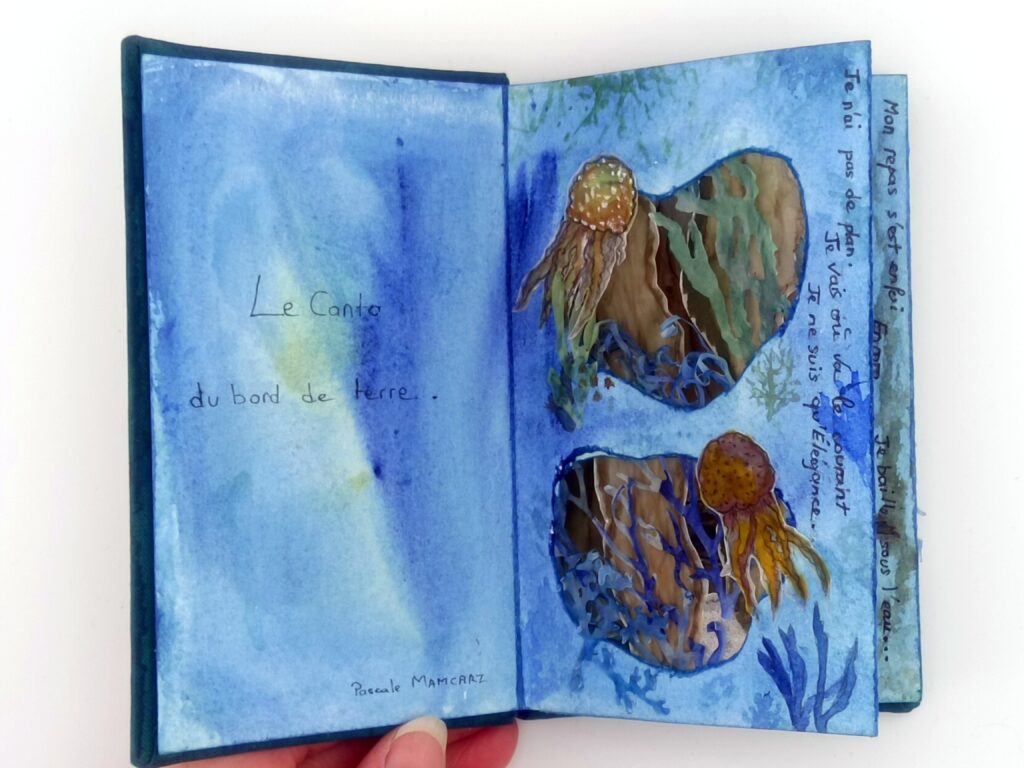 Le Canto
du bord de terre.
Pascale MAMCARZ
Je n'ai pas de plan.
Je vais où va le courant
Je ne suis qu'Elégance.
Mon repas s'est enfui
Je baille sous l'eau...